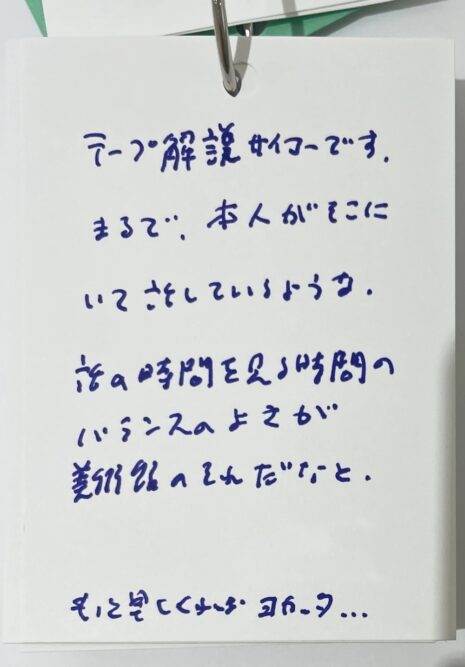 テープ解説サイコーです.
まるで、本人がそこに
いて話しているような.
話の時間を見る時間の
バランスのよさが
美術館のそれだなと.
もっと